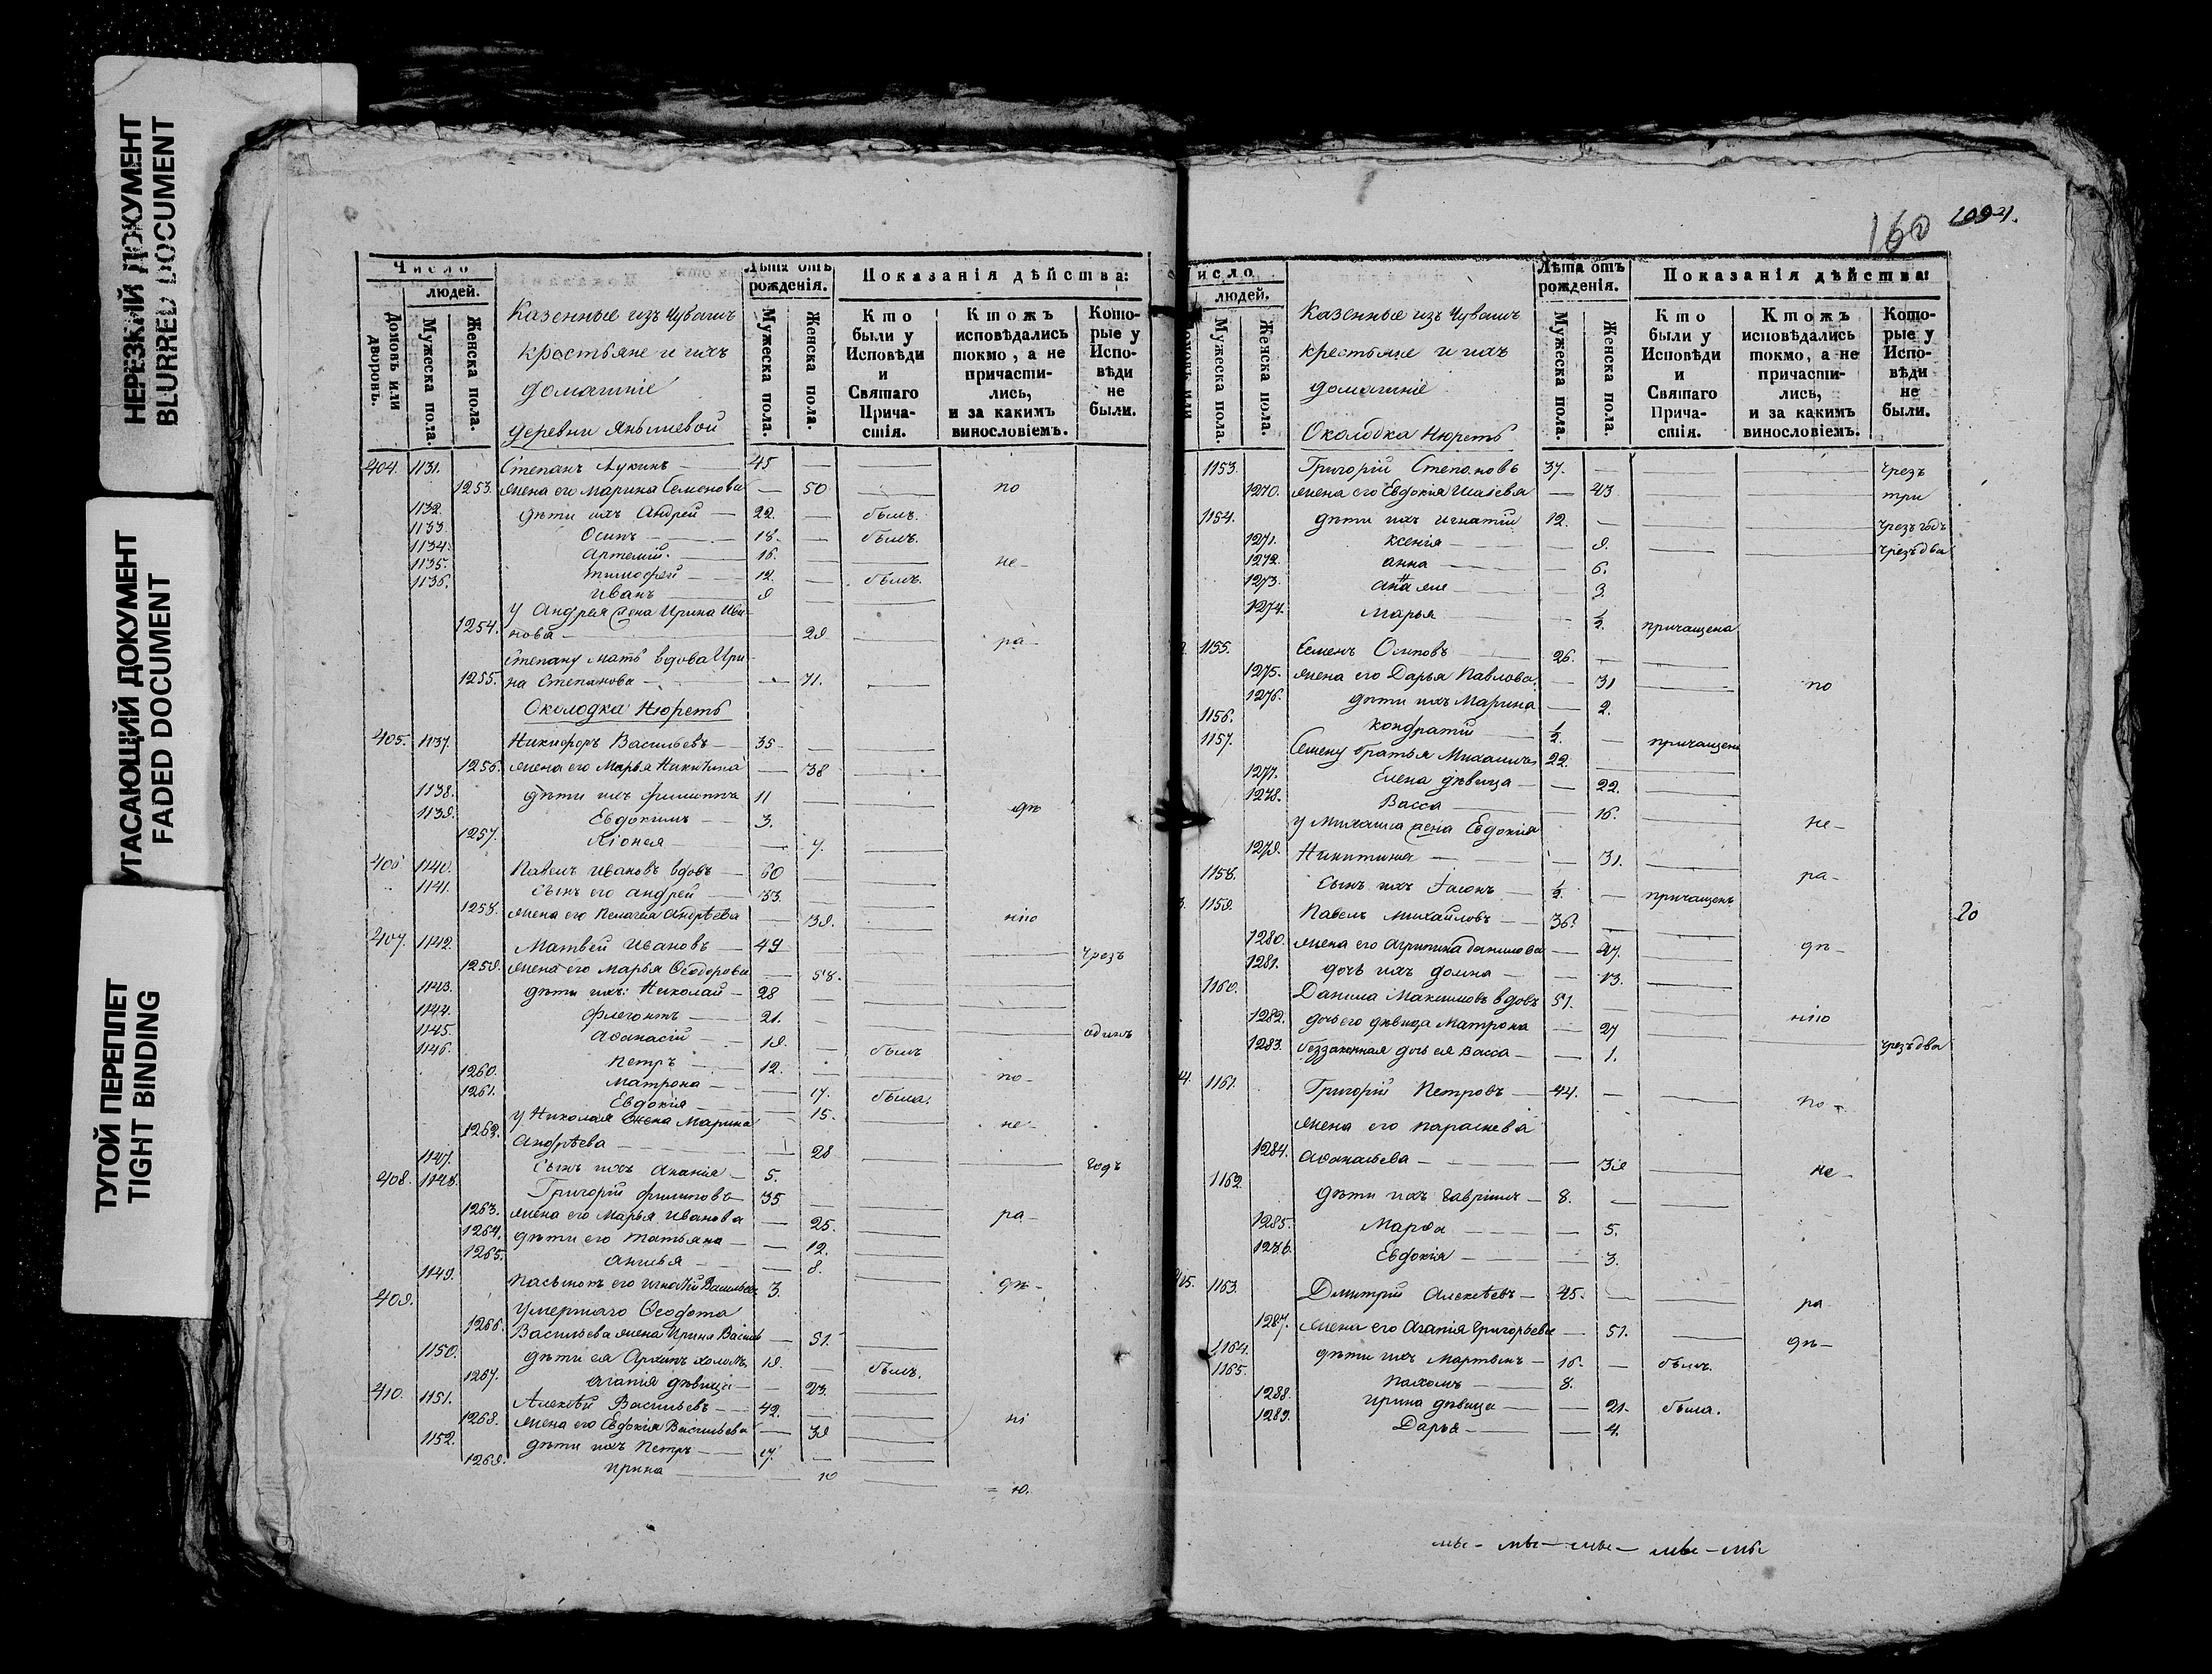 НЕРЕЗКИЙ ДОКУМЕНТ
BLURRED DOCUMENT
УГАСАЮЩИЙ ДОКУМЕНТ
FADED DOCUMENT
ТУГОЙ ПЕРЕПЛЕТ
TIGHT BINDING
Число
людей.
Домовъ или дворовъ.
Мужеска пола.
Женска пола.
Казенные изъ Чувашъ
крестьяне и ихъ
домашніе
деревни Янышевой
Лѣта отъ рожденія.
Мужеска пола.
Женска пола.
Показанія дѣйства:
Кто были у Исповѣди и Святаго Причастія.
Ктожъ исповѣдались токмо, а не причастились, и за какимъ винословіемъ.
Которые у Исповѣди не были.
404. 1131. Степанъ Лукинъ 45
1253. жена его Марина Семенова 50 по
1132. дѣти ихъ Андрей 22. былъ.
1133. Осипъ 18. былъ.
1134. Артемій 16
1135. Тимофей 12. не- былъ.
1136. Иванъ 9
У Андрея жена Ирина Ива-
1254. нова 29. ра-
Степану мать вдова Ири-
1255. на Степанова 71.
Околодка Нюреть
405. 1137. Никифоръ Васильевъ 35
1256. жена его Марья Никитина 38
1138. дѣти ихъ Филиппъ 11
1139. Евдокимъ 3. дѣ
1257. 7.
406 1140. Павелъ Ивановъ вдовъ 60
1141. сынъ его Андрей 33.
1258. жена его Пелагея Андрѣева 39. нію
407. 1142. Матвей Ивановъ 49 чрезъ
1259. жена его Марья Ѳеодорова 58.
1143. дѣти ихъ: Николай 28
1144. Флегонтъ 21.
1145. Аѳанасій 19. одинъ
1146. Петръ 12. былъ
1260. Матрона 17. по- была.
1261. Евдокія 15.
У Николая жена Марина
1262. Андрѣева 28 не-
1147. сынъ ихъ Ананія 5. годъ
408. 1148. Григорій Филиповъ 35
1263. жена его Марья Иванова 25. ра-
1264. дѣти его Татьяна 12.
1265. Анисья 8.
1149. пасынокъ его Игнатій Васильевъ 3. дѣ-
409. Умершаго Ѳеодота
1266. Васильева жена Ирина Василь 51.
1150. дѣти ея Архипъ холостъ 19. былъ.
1267. Агапія дѣвица 23.
410. 1151. Алексѣй Васильевъ 42.
1268. жена его Евдокія Васильева 39 ні
1152. дѣти ихъ Петръ 17.
1269. Ирина 10
= ю.
160
1094.
исло
людей.
Мужеска пола.
Женска пола.
Казенные изъ Чувашъ
крестьяне и ихъ
домашніе
Околодка Нюреть
Лѣта отъ рожденія.
Мужеска пола.
Женска пола.
Показанія дѣйства:
Кто были у Исповѣди и Святаго Причастія.
Ктожъ исповѣдались токмо, а не причастились, и за какимъ винословіемъ.
Которые у Исповѣди не были.
1153. Григорій Степановъ 37. чрезъ
1270. жена его Евдокія Исаіева 43 три
1154. дѣти ихъ Игнатій 12. чрезъ годъ
1271. Ксенія 9. чрезъ два
1272. Анна 6.
1273. Анна же 3.
1274. Марья ½. причащена
1155. Семенъ Осиповъ 26.
1275. жена его Дарья Павлова 31 по
1276. дѣти ихъ Марина 2.
1156. Кондратій ½. причащенъ
1157. Семену братья Михаилъ 22.
1277. Елена дѣвица 22.
1278. Васса 16. не-
У Михаила жена Евдокія
1279. Никитина 31.
1158. сынъ ихъ ½. причащенъ ра-
1159. Павелъ Михайловъ 36.
1280. жена его Агрипина Данилова 47. дѣ-
1281. дочь ихъ Домна 13.
1160. Данила Максимовъ вдовъ 51.
1282. дочь его дѣвица Матрона 27 нію
1283. беззаконная дочь ея Васса 1. чрезъ два
1161. Григорій Петровъ 44. по-
жена его Параскева
1284. Аѳанасьева 39 не-
1162. дѣти ихъ Гавріилъ 8.
1285. Марѳа 5.
1286. Евдокія 3.
1163. Димитрій Алексѣевъ 45. ра
1287. жена его Агапія Григорьева 51. дѣ-
1164. дѣти ихъ Мартынъ 16. былъ.
1165. Пахомъ 8.
1288. Ирина дѣвица 21. была.
1289. Дарья 4.
20
мы- мы- мы- мы-мы